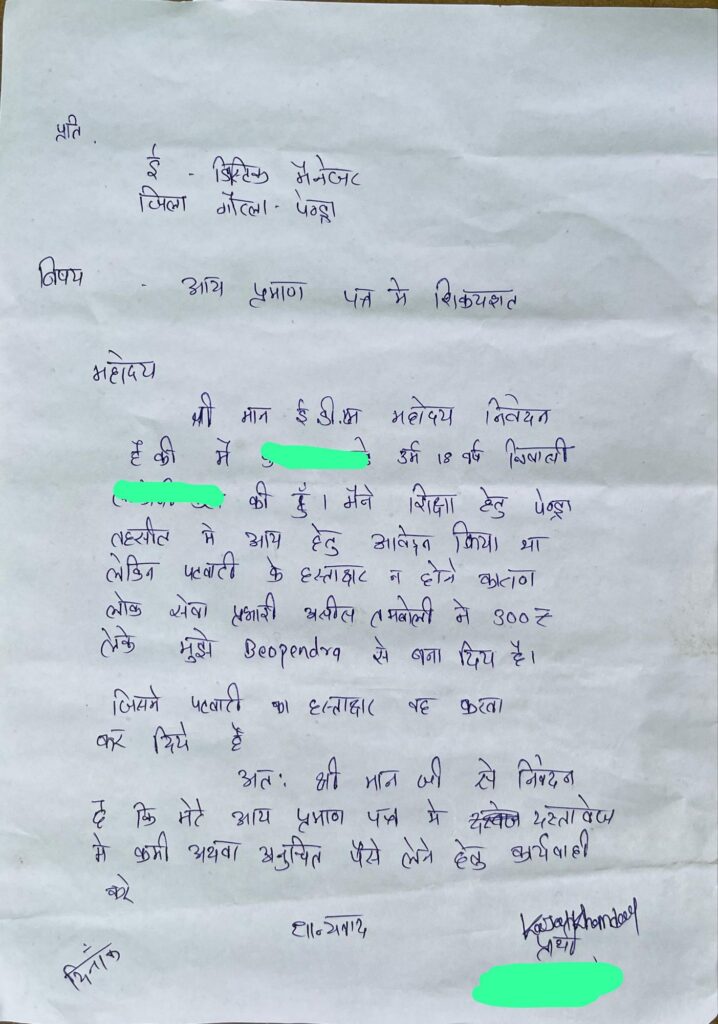 प्रति.
ई - डिस्टिक मैनेजर
जिला गौरेला - पेन्ड्रा
विषय - आय प्रमाण पत्र मे शिकयशत
महोदय
श्री मान ई.डी.एम महोदय निवेदन
है की मै उर्म 18 वर्ष निवासी
की हुँ। मैने शिक्षा हेतु पेन्ड्रा
तहसील मे आय हेतु आवेदन किया था
लेकिन पटवारी के हस्ताक्षर न होने कारण
लोक सेवा प्रभारी अनील तम्बोली ने 300 रू
लेके मुझे Beopendra से बना दिय है।
जिसमे पटवारी का हस्ताक्षर वह करवा
कर दिये है
अतः श्री मान जी से निवेदन
है कि मेरे आय प्रमाण पत्र मे दस्तावेज
मे कमी अथवा अनुचित पैसे लेने हेतु कार्यवाही
करे
धान्यवाद
प्राथी
दिनाँक